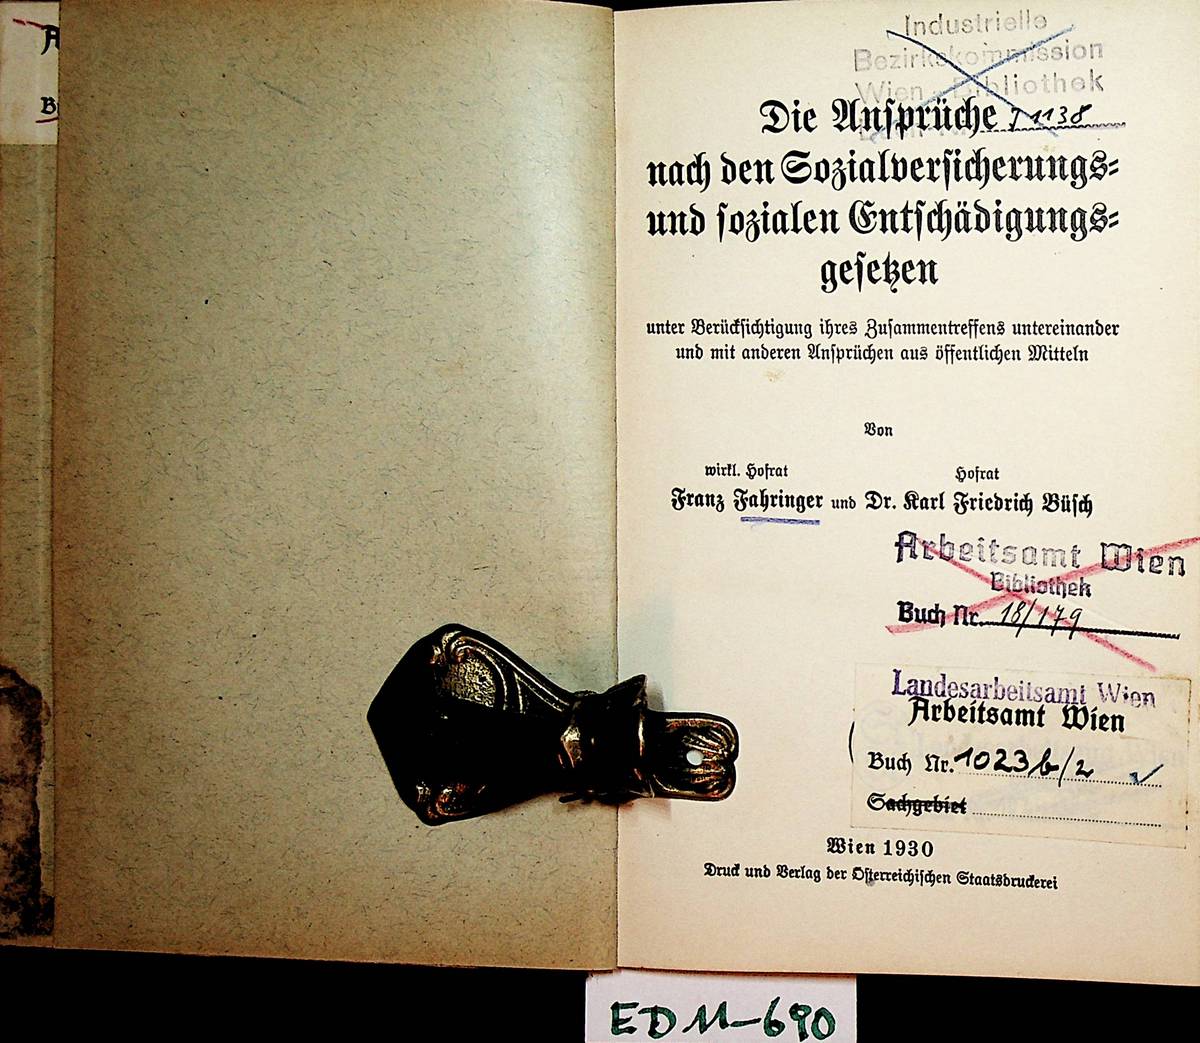 Industrielle
Bezirkskommission
Wien - Bibliothek
Die Ansprüche J 1138
nach den Sozialversicherungs-
und sozialen Entschädigungs-
gesetzen
unter Berücksichtigung ihres Zusammentreffens untereinander
und mit anderen Ansprüchen aus öffentlichen Mitteln
Von
wirkl. Hofrat Hofrat
Franz Fahringer und Dr. Karl Friedrich Büsch
Arbeitsamt Wien
Bibliothek
Buch Nr. 18/179
Landesarbeitsamt Wien
Arbeitsamt Wien
Buch Nr. 1023 b/2
Sachgebiet
Wien 1930
Druck und Verlag der Österreichischen Staatsdruckerei
EDM-690